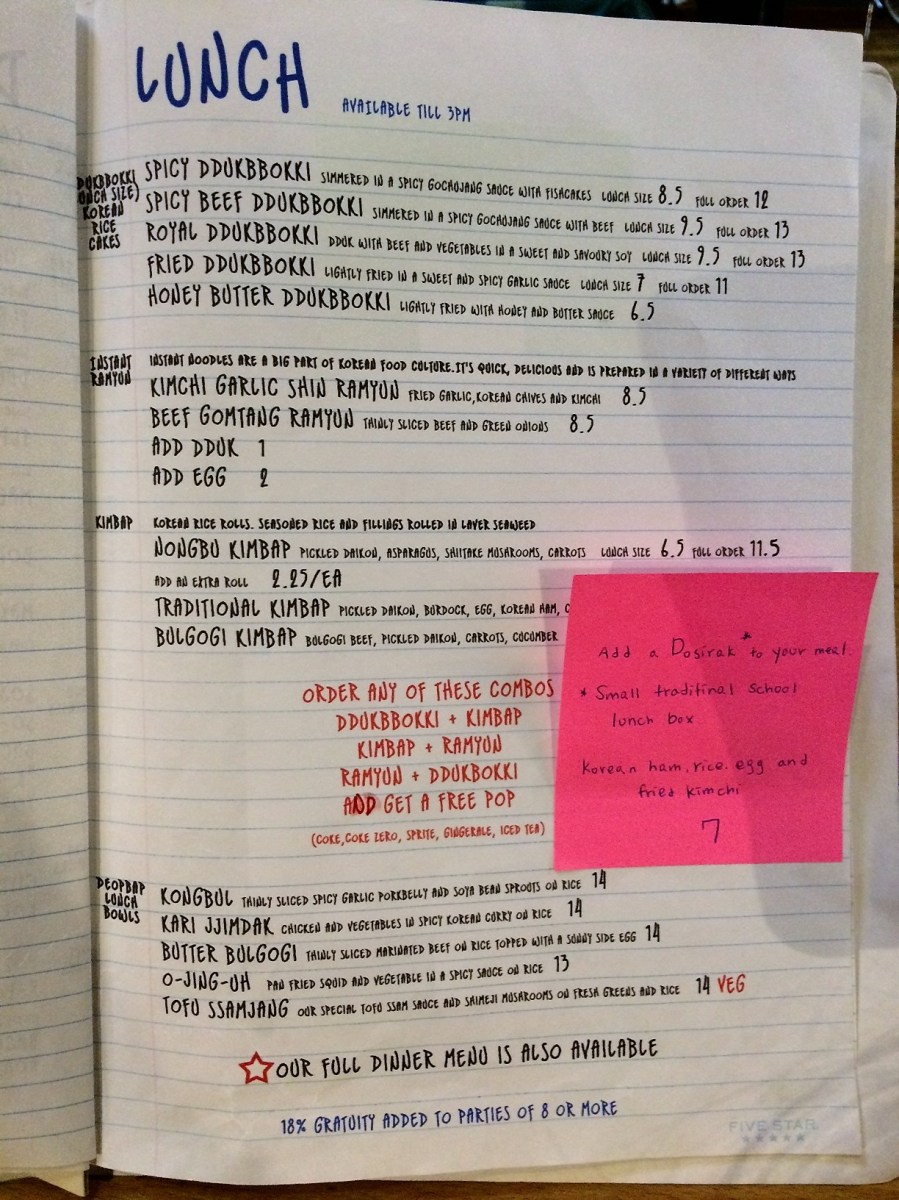 LUNCH AVAILABLE TILL 3PM
DUKBBOKKI
(LUNCH SIZE)
KOREAN
RICE
CAKES
SPICY DDUKBBOKKI SIMMERED IN A SPICY GOCHUJANG SAUCE WITH FISHCAKES LUNCH SIZE 8.5 FULL ORDER 12
SPICY BEEF DDUKBBOKKI SIMMERED IN A SPICY GOCHUJANG SAUCE WITH BEEF LUNCH SIZE 9.5 FULL ORDER 13
ROYAL DDUKBBOKKI DDUK WITH BEEF AND VEGETABLES IN A SWEET AND SAVOURY SOY LUNCH SIZE 9.5 FULL ORDER 13
FRIED DDUKBBOKKI LIGHTLY FRIED IN A SWEET AND SPICY GARLIC SAUCE LUNCH SIZE 7 FULL ORDER 11
HONEY BUTTER DDUKBBOKKI LIGHTLY FRIED WITH HONEY AND BUTTER SAUCE 6.5
INSTANT
RAMYUN
INSTANT NOODLES ARE A BIG PART OF KOREAN FOOD CULTURE.IT'S QUICK, DELICIOUS AND IS PREPARED IN A VARIETY OF DIFFERENT WAYS
KIMCHI GARLIC SHIN RAMYUN FRIED GARLIC,KOREAN CHIVES AND KIMCHI 8.5
BEEF GOMTANG RAMYUN THINLY SLICED BEEF AND GREEN ONIONS 8.5
ADD DDUK 1
ADD EGG 2
KIMBAP KOREAN RICE ROLLS. SEASONED RICE AND FILLINGS ROLLED IN LAVER SEAWEED
NONGBU KIMBAP PICKLED DAIKON, ASPARAGUS, SHIITAKE MUSHROOMS, CARROTS LUNCH SIZE 6.5 FULL ORDER 11.5
ADD AN EXTRA ROLL 2.25/EA
TRADITIONAL KIMBAP PICKLED DAIKON, BURDOCK, EGG, KOREAN HAM, C
BULGOGI KIMBAP BULGOGI BEEF, PICKLED DAIKON, CARROTS, CUCUMBER
Add a Dosirak* to your meal.
* Small traditinal school
lunch box
Korean ham, rice. egg and
fried kimchi
7
ORDER ANY OF THESE COMBOS
DDUKBBOKKI + KIMBAP
KIMBAP + RAMYUN
RAMYUN + DDUKBOKKI
AND GET A FREE POP
(COKE,COKE ZERO, SPRITE, GINGERALE, ICED TEA)
DEOPBAP
LUNCH
BOWLS
KONGBUL THINLY SLICED SPICY GARLIC PORKBELLY AND SOYA BEAN SPROUTS ON RICE 14
KARI JJIMDAK CHICKEN AND VEGETABLES IN SPICY KOREAN CURRY ON RICE 14
BUTTER BULGOGI THINLY SLICED MARINATED BEEF ON RICE TOPPED WITH A SUNNY SIDE EGG 14
O-JING-UH PAN FRIED SQUID AND VEGETABLE IN A SPICY SAUCE ON RICE 13
TOFU SSAMJANG OUR SPECIAL TOFU SSAM SAUCE AND SHIMEJI MUSHROOMS ON FRESH GREENS AND RICE 14 VEG
OUR FULL DINNER MENU IS ALSO AVAILABLE
18% GRATUITY ADDED TO PARTIES OF 8 OR MORE
FIVE STAR